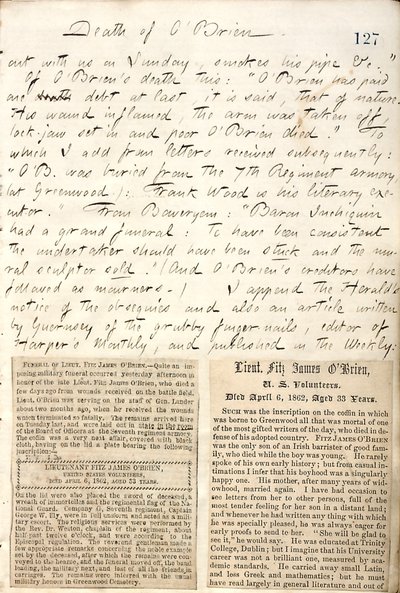 Death of O'Brien.
127
out with us on Sunday, smokes his pipe &c."
Of O'Brien's death this: "O'Brien has paid
one debt at last, it is said, that of nature.
His wound inflamed, the arm was taken off,
lock-jaw set in and poor O'Brien died." To
which I add from letters received subsequently:
"O'B. was buried from the 7th Regiment armory,
(at Greenwood): Frank Wood is his literary exe-
cutor." From Boweryem: "Baron Inchiquin
had a grand funeral: To have been consistent
the undertaker should have been stuck and the mu-
ral sculptor sold! (And O'Brien's creditors have
followed as mourners.) I append the Herald's
notice of the obsequies and also an article written
by Guernsey of the grubby finger nails, editor of
Harper's Monthly, and published in the Weekly:
FUNERAL OF LIEUT. FITZ JAMES O'BRIEN.—Quite an im-
posing military funeral occurred yesterday afternoon in
honor of the late Lieut. Fitz James O'Brien, who died a
few days ago from wounds received on the battle field.
Lieut. O'Brien was serving on the staff of Gen. Lander
about two months ago, when he received the wounds
which terminated so fatally. The remains arrived here
on Tuesday last, and were laid out in state in the room
of the Board of Officers at the Seventh regiment armory.
The coffin was a very neat affair, covered with black
cloth, having on the lid a plate bearing the following
inscription:—
LIEUTENANT FITZ JAMES O'BRIEN,
UNITED STATES VOLUNTEERS,
DIED APRIL 6, 1862, AGED 33 YEARS.
On the lid were also placed the sword of deceased, a
wreath of immortelles and the regimental flag of the Na-
tional Guard. Company G, Seventh regiment, Captain
George W. Ely, were in full uniform and acted as a mili-
tary escort. The religious services were performed by
the Rev. Dr. Weston, chaplain of the regiment, about
half past twelve o'clock, and were according to the
Episcopal regulation. The reverend gentleman made a
few appropriate remarks concerning the noble example
set by the deceased, after which the remains were con-
veyed to the hearse, and the funeral moved off, the band
leading, the military next, and last of all the friends in
carriages. The remains were interred with the usual
military honors in Greenwood Cemetery.
Lieut. Fitz James O'Brien,
U. S. Volunteers.
Died April 6, 1862, Aged 33 Years.
SUCH was the inscription on the coffin in which
was borne to Greenwood all that was mortal of one
of the most gifted writers of the day, who died in de-
fense of his adopted country. FITZ JAMES O'BRIEN
was the only son of an Irish barrister of good fam-
ily, who died while the boy was young. He rarely
spoke of his own early history; but from casual in-
timations I infer that his boyhood was a singularly
happy one. His mother, after many years of wid-
owhood, married again. I have had occasion to
see letters from her to other persons, full of the
most tender feeling for her son in a distant land;
and whenever he had written any thing with which
he was specially pleased, he was always eager for
early proofs to send to her. "She will be glad to
see it," he would say. He was educated at Trinity
College, Dublin; but I imagine that his University
career was not a brilliant one, measured by aca-
demic standards. He carried away small Latin,
and less Greek and mathematics; but he must
have read largely in general literature and out of